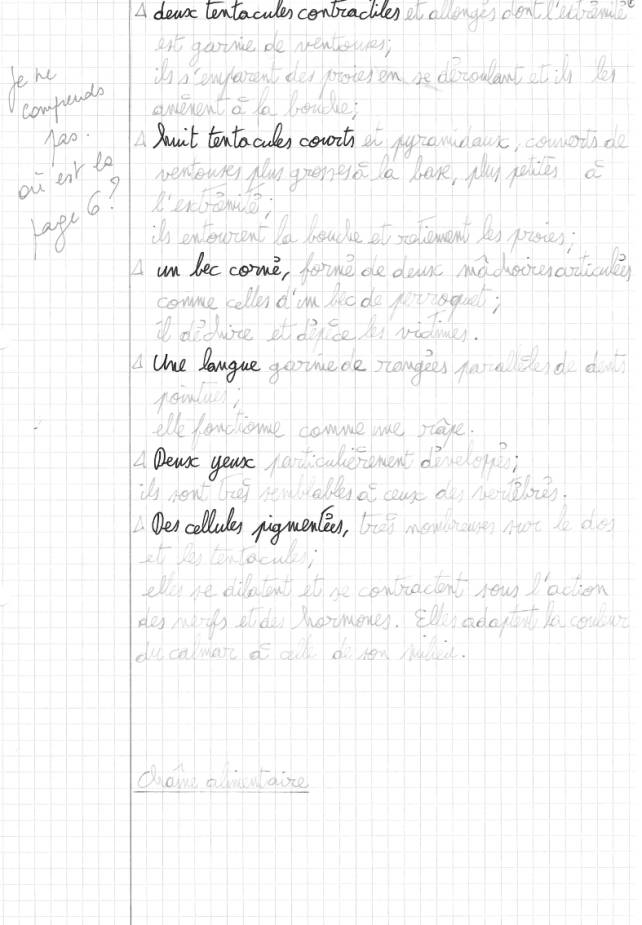 Δ deux tentacules contractiles et allongés dont l'extrêmité
est garnie de ventouses;
ils s'emparent des proies en se déroulant et ils les
amènent à la bouche;
Δ huit tentacules courts et pyramidaux, couverts de
ventouses plus grosses à la base, plus petites à
l'extrêmité;
ils entourent la bouche et retiennent les proies;
Δ un bec corné, formé de deux mâchoires articulées
comme celles d'un bec de perroquet;
il déchire et dépèce les victimes.
Δ Une langue garnie de rangées parallèles de dents
pointues;
elle fonctionne comme une râpe.
Δ Deux yeux particulièrement développés;
ils sont très semblables à ceux des vertébrés.
Δ Des cellules pigmentées, très nombreuses sur le dos
et les tentacules;
elles se dilatent et se contractent sous l'action
des nerfs et des hormones. Elles adaptent la couleur
du calmar à celle de son milieu.
Chaîne alimentaire
je ne
comprends
pas.
où est la
page 6?